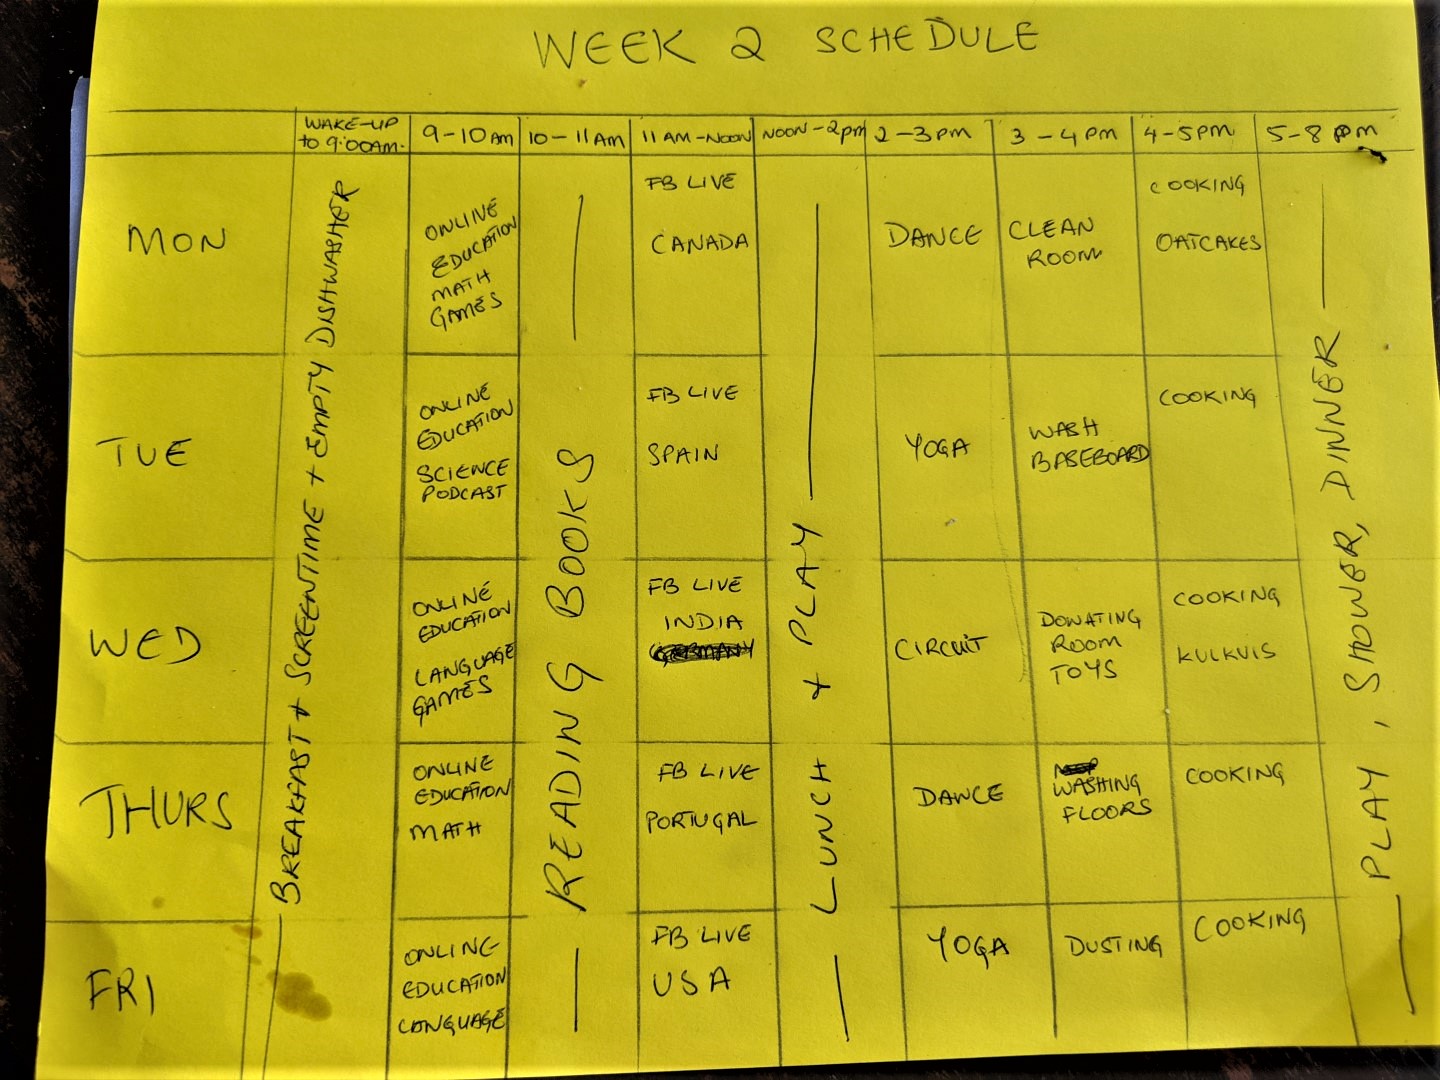 WEEK 2 SCHEDULE
WAKE-UP
to 9:00AM.
9-10AM
10-11AM
11AM-NOON
NOON-2pm
2-3PM
3-4PM
4-5PM
5-8 PM
BREAKFAST + SCREENTIME + EMPTY DISHWASHER
READING BOOKS
LUNCH + PLAY
PLAY, SHOWER, DINNER
MON
ONLINE
EDUCATION
MATH
GAMES
FB LIVE
CANADA
DANCE
CLEAN
ROOM
COOKING
OATCAKES
TUE
ONLINE
EDUCATION
SCIENCE
PODCAST
FB LIVE
SPAIN
YOGA
WASH
BASEBOARD
COOKING
WED
ONLINE
EDUCATION
LANGUAGE
GAMES
FB LIVE
INDIA
GERMANY
CIRCUIT
DONATING
ROOM
TOYS
COOKING
KULKUIS
THURS
ONLINE
EDUCATION
MATH
FB LIVE
PORTUGAL
DANCE
WASHING
FLOORS
COOKING
FRI
ONLINE
EDUCATION
LANGUAGE
FB LIVE
USA
YOGA
DUSTING
COOKING